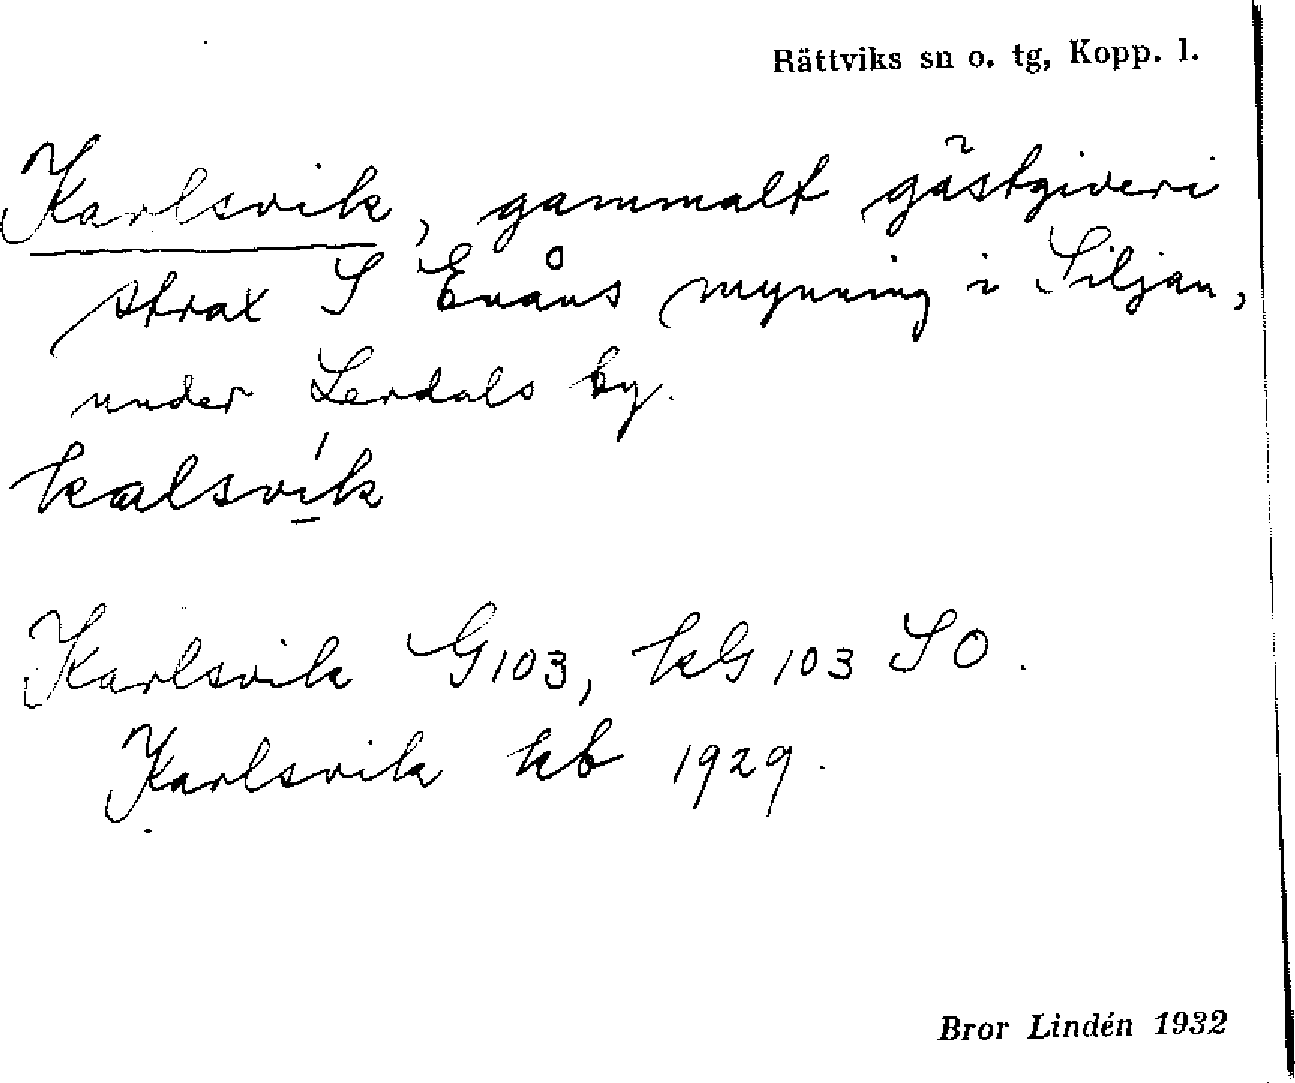 Rättviks sn o. tg, Kopp. l.
Karlsvik, gammalt gästgiveri
strax S Enåns mynning i Siljan,
under Lerdals by.
kalsvi̠k
Karlsvik G103, kG103 SO.
Karlsvik kb 1929.
Bror Lindén 1932